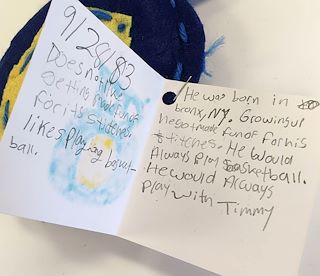 9/28/83
Does not like
getting made fun of
for its stitches.
likes playing basket-
ball.
He was born in
bronx, NY. Growing up
he got made fun of for his
stitches. He would
Always play basketball.
He would Always
play with Timmy